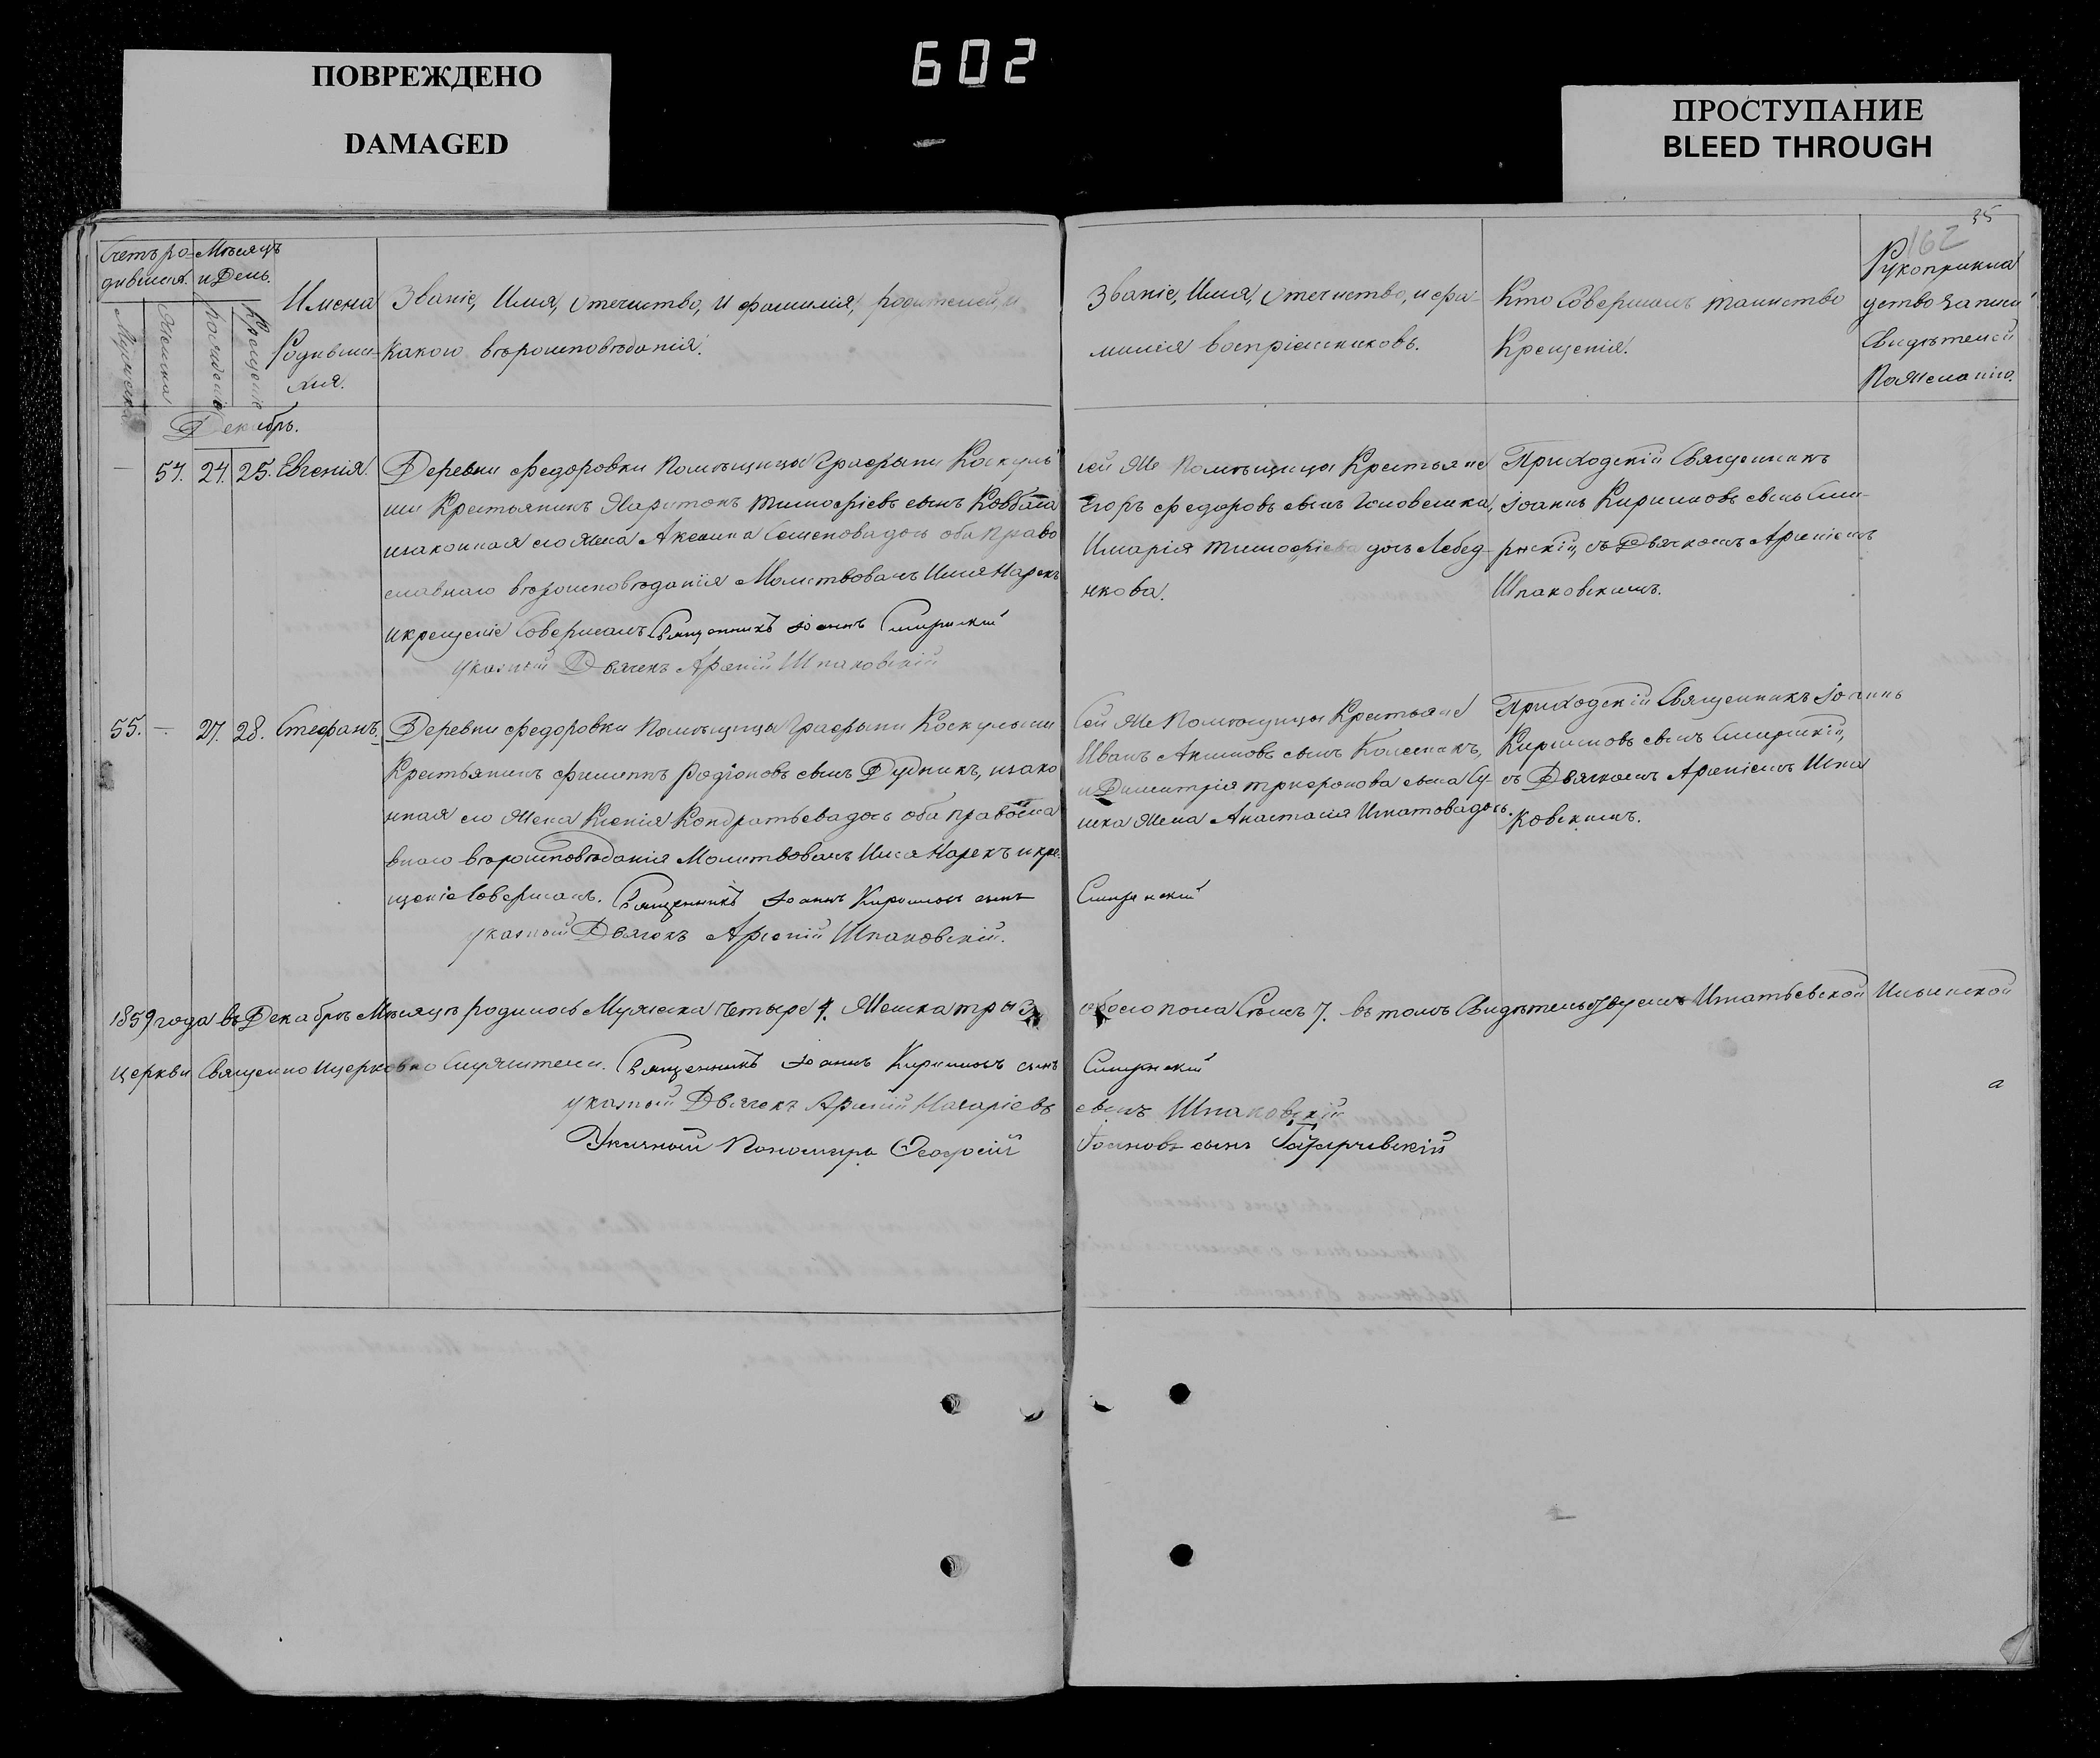 ПОВРЕЖДЕНО
DAMAGED
602
ПРОСТУПАНИЕ
BLEED THROUGH
35
162
Счетъ ро-
дившихся.
Мѣсяцъ
и День.
Мужеска
Женска
Рожденіе
Крещеніе
Имена
Родивши-
хся.
Званіе, Имя, Отечество, и фамилія, родителей, и
Какого вѣроисповѣданія.
Званіе, Имя, Отечество, и фа-
милія воспріемниковъ.
Кто Совершалъ таинство
Крещенія.
Рукоприкла
дство записи
Свидѣтелей
По желанію.
Декабрь.
— 54. 24. 25. Евгенія.
Деревни Федоровки Помѣщицы Графыни
ни Крестьянинъ Харитонъ Тимофѣевъ сынъ
и законная его жена Акелина Семеновадочь оба Право
славнаго вѣроисповѣданія Молитвовалъ Имя Нарекъ
и крещеніе Совершалъ Священникъ Іоаннъ
указный Дьячекъ Арсеній Шпаковскій
сей же Помѣщицы Крестьяне
Егоръ Федоровъ сынъ
и Марія Тимофѣева дочь Лебед-
нкова.
Приходскій Священникъ
Іоаннъ Кириловъ сынъ
съ Дьячкомъ Арсеніемъ
Шпаковскимъ.
55. — 27. 28. Стефанъ.
Деревни Федоровки Помѣщицы Графыни
Крестьянинъ Филиппъ Родіоновъ сынъ Дудникъ, и зако
нная его жена Ксенія Кондратьевадочь оба правосла
внаго вѣроисповѣданія Молитвовалъ Имя Нарекъ и кре-
щеніе Совершалъ. Священникъ Іоаннъ Кириловъ сынъ
указный Дьячекъ Арсеній Шпаковскій.
Сей же Помѣщицы Крестьяне
Иванъ Акимовъ сынъ Колесникъ,
и Димитрія сына
жена Анастасія Игнатовадочь.
Приходскій Священникъ Іоаннъ
Кириловъ сынъ
съ Дьячкомъ Арсеніемъ Шпа
ковскимъ.
1859 года въ Декабрѣ Мѣсяцѣ родилось Мужеска Четыре 4. Женска три 3. обоего пола Семь 7. въ томъ Свидѣтельствуемъ Игнатьевской Ильинской
Церкви Священно и церковно Служители. Священникъ Іоаннъ Кириловъ сынъ
указный Дьячекъ Арсеній Назаріевъ сынъ Шпаковскій
Указный Пономарь Ѳеофосій Іоановъ сынъ